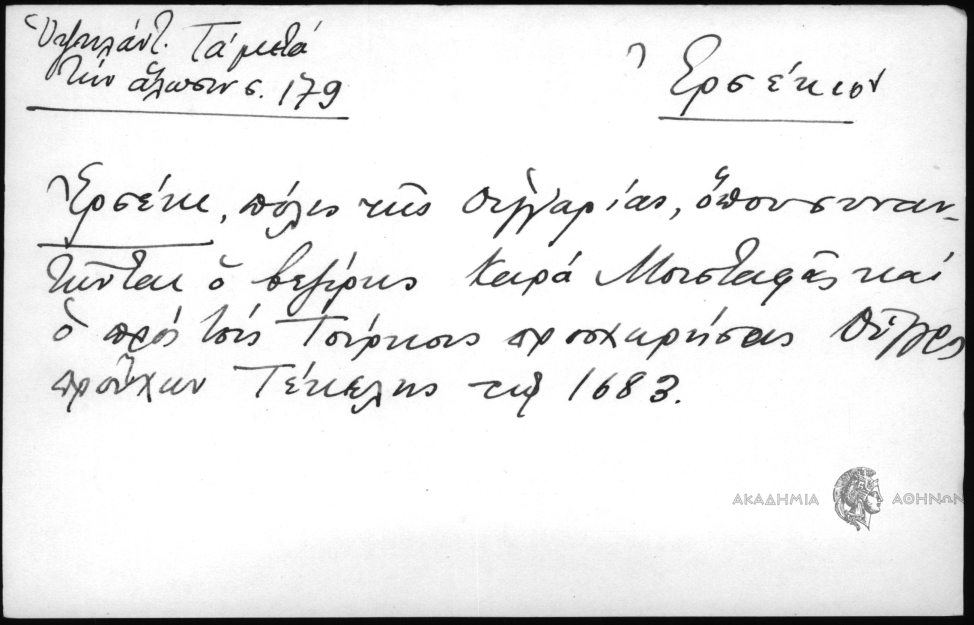 Ὑψηλάντ. Τά μετά
τήν ἅλωσιν σ. 179
Ἐρσέκιον
Ἐρσέκι, πόλις τῆς Οὑγγαρίας, ὅπου συναν-
τῶνται ὁ βεζίρης Καρά Μουσταφᾶς καί
ὁ πρός τούς Τούρκους προσχωρήσας Οὗγγρος
προὔχων Τέκελης τῷ 1683.
ΑΚΑΔΗΜΙΑ ΑΘΗΝΩΝ